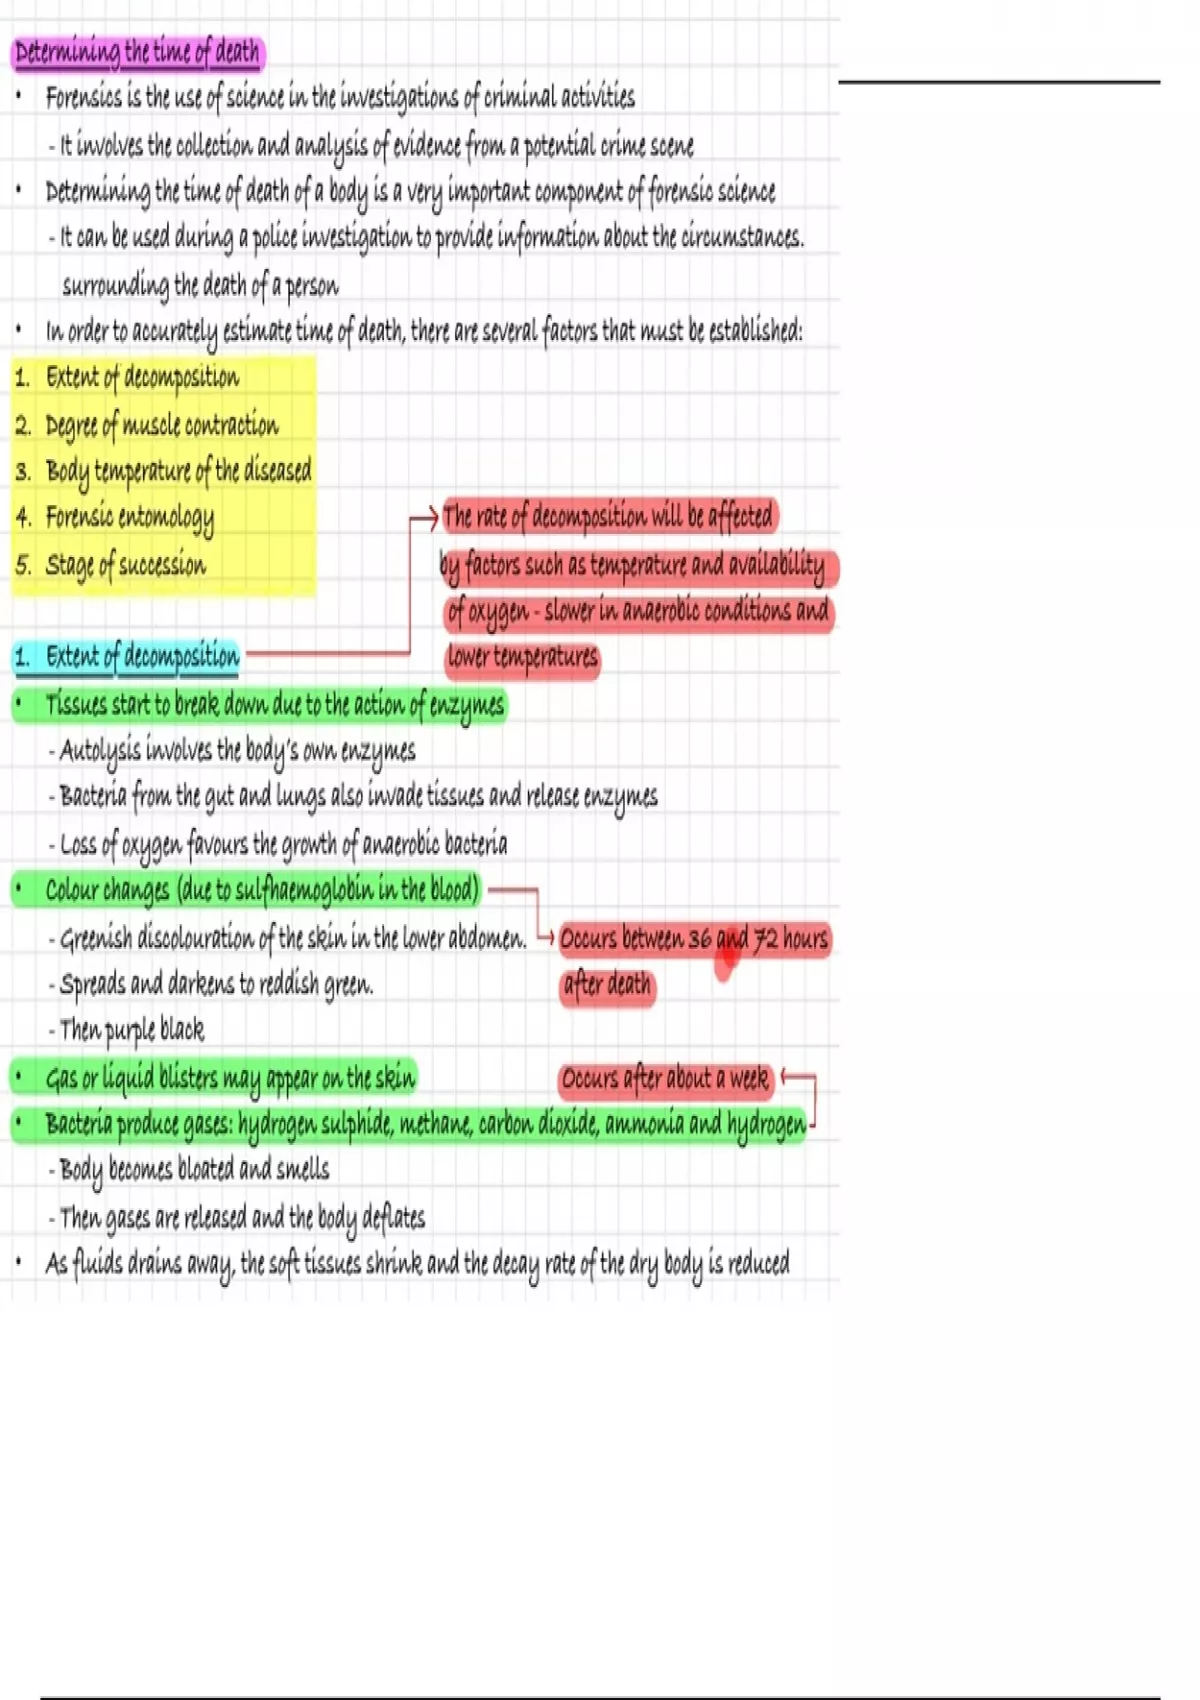 Determining the time of death
• Forensics is the use of science in the investigations of criminal activities
- It involves the collection and analysis of evidence from a potential crime scene
• Determining the time of death of a body is a very important component of forensic science
- It can be used during a police investigation to provide information about the circumstances.
surrounding the death of a person
• In order to accurately estimate time of death, there are several factors that must be established:
1. Extent of decomposition
2. Degree of muscle contraction
3. Body temperature of the diseased
4. Forensic entomology
5. Stage of succession
The rate of decomposition will be affected
by factors such as temperature and availability
of oxygen - slower in anaerobic conditions and
lower temperatures
1. Extent of decomposition
• Tissues start to break down due to the action of enzymes
- Autolysis involves the body's own enzymes
- Bacteria from the gut and lungs also invade tissues and release enzymes
- Loss of oxygen favours the growth of anaerobic bacteria
• Colour changes (due to sulfhaemoglobin in the blood)
- Greenish discolouration of the skin in the lower abdomen.
- Spreads and darkens to reddish green.
- Then purple black
Occurs between 36 and 72 hours
after death
• Gas or liquid blisters may appear on the skin
Occurs after about a week
• Bacteria produce gases: hydrogen sulphide, methane, carbon dioxide, ammonia and hydrogen
- Body becomes bloated and smells
- Then gases are released and the body deflates
• As fluids drains away, the soft tissues shrink and the decay rate of the dry body is reduced